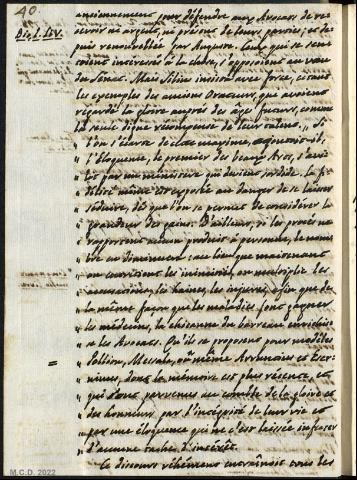 40.
anciennement pour défendre aux Avocats de re-
cevoir ni argent, ni présent de leurs parties; et de
Dio. l. LIV.
puis renouvellée par Auguste. Ceux qui se sen-
toient intéressés à la chose, s'opposoient au vœu
du Sénat. Mais Silius insista avec force, citant
les exemples des anciens Orateurs, qui avoient
regardé la gloire auprès des âges futurs, comme
la seule digne récompense de leurs talens. „ Si
„ l'on s'écarte de cette maxime, ajoutoit-il,
„ l'éloquence, le premier des beaux Arts, s'avi-
„ lit par un ministère qui devient sordide. La fi-
„ délité même est exposée au danger de se laisser
„ séduire, dès que l'on se permet de considérer la
„ grandeur des gains. D'ailleurs, si les procès ne
„ rapportent aucun produit à personne, le nom-
„ bre en diminuera: au lieu que maintenant
„ on entretient les inimitiés, on multiplie les
„ accusations, les haines, les injures, afin que de
„ la même façon que les maladies font gagner
„ les médecins, la chicane du barreau enrichis-
„ se les Avocats. Qu'ils se proposent pour modèles
„ Pollion, Messala, ou même Arruntius et Eser-
„ ninus, dont la mémoire est plus récente, et
„ qui sont parvenus au comble de la gloire et
„ des honneurs par l'intégrité de leur vie et
„ par une éloquence qui ne s'est laissée infecter
„ d'aucune tache d'intérêt.
Ce discours véhément entraînoit tous les
M.C.D. 2022